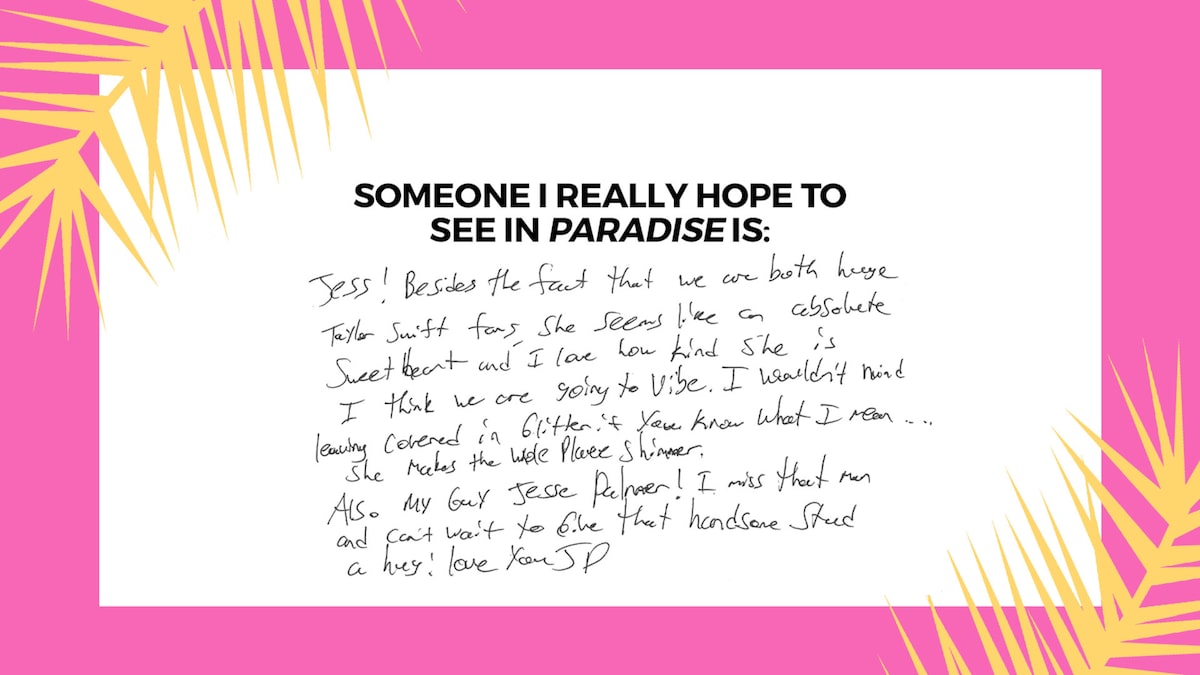 SOMEONE I REALLY HOPE TO
SEE IN PARADISE IS:
Jess! Besides the fact that we are both huge
Taylor Swift fans, she seems like an absolute
Sweetheart and I love how kind she is
I think we are going to vibe. I wouldn't mind
leaving covered in Glitter if you know what I mean ....
She makes the whole place shimmer.
Also my Guy Jesse Palmer! I miss that man
and can't wait to Give that handsome Stud
a hug! love you JP